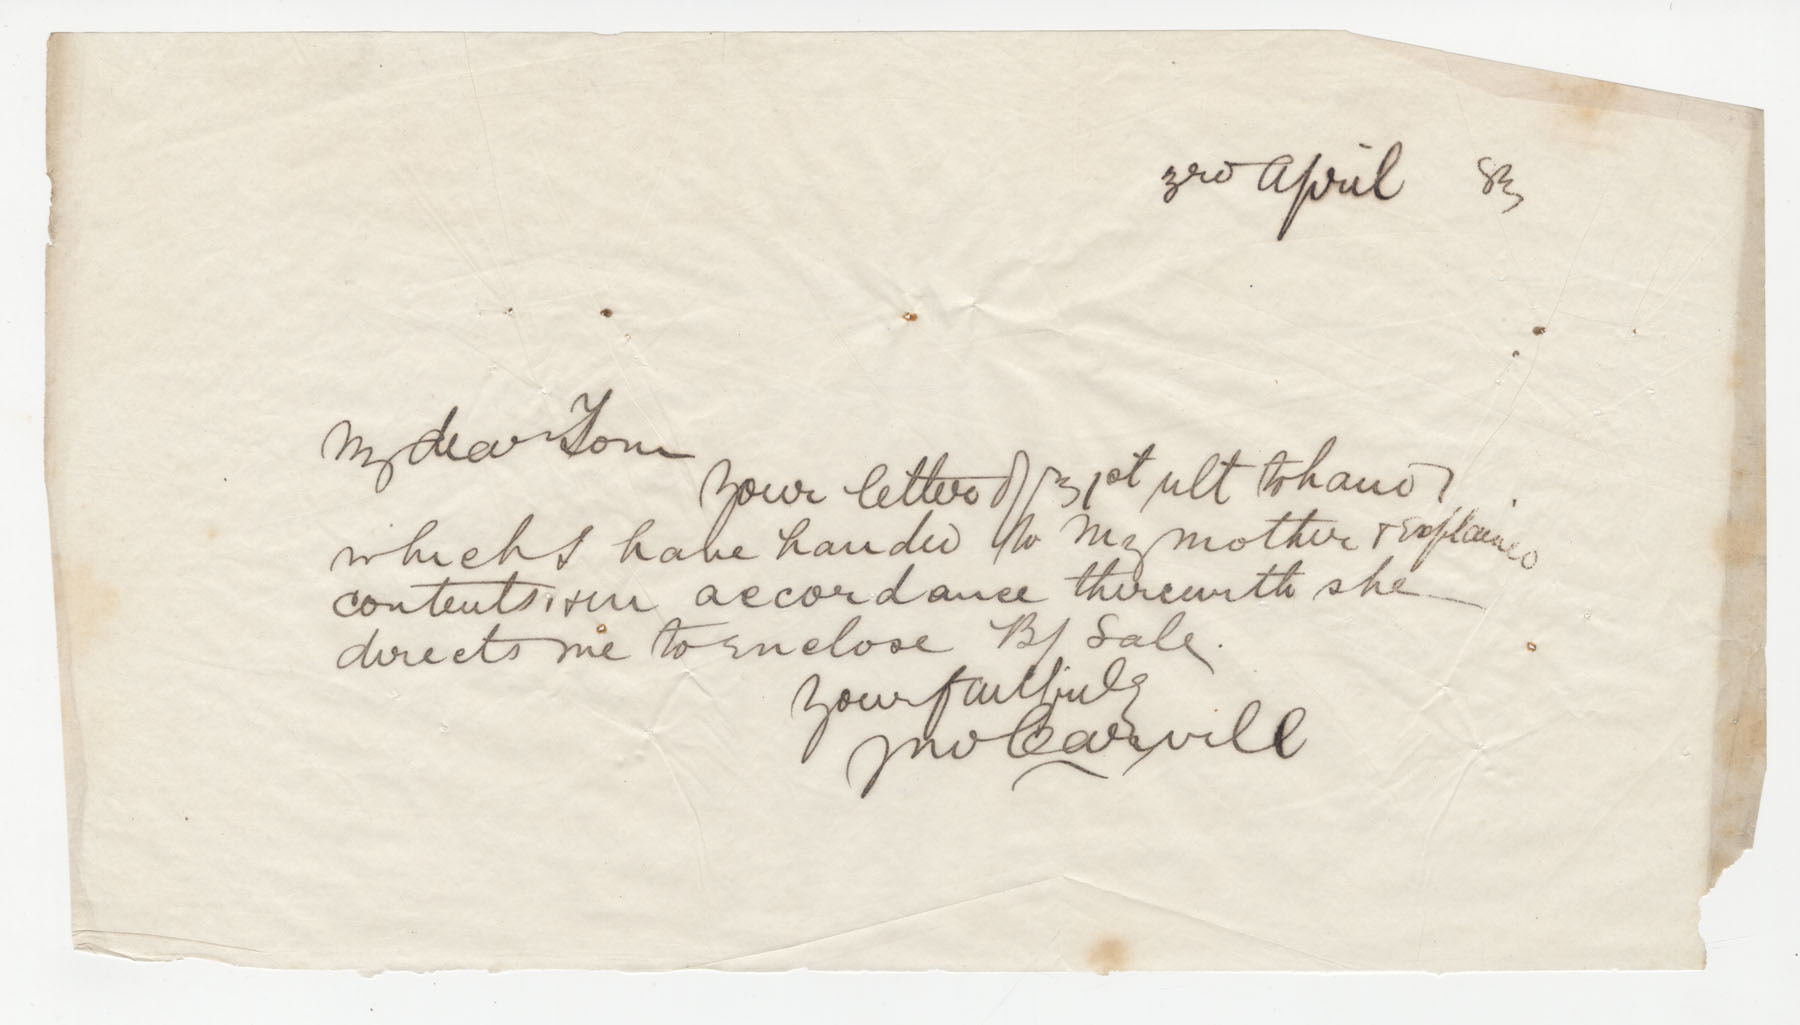 3rd April 83
My dear Tom
Your letter of 31st ult to hand
which I have handed to my mother & Explained
contents, & in accordance therewith she
directs me to Enclose B/ Sale.
Yours faithfully
Jno Carvill